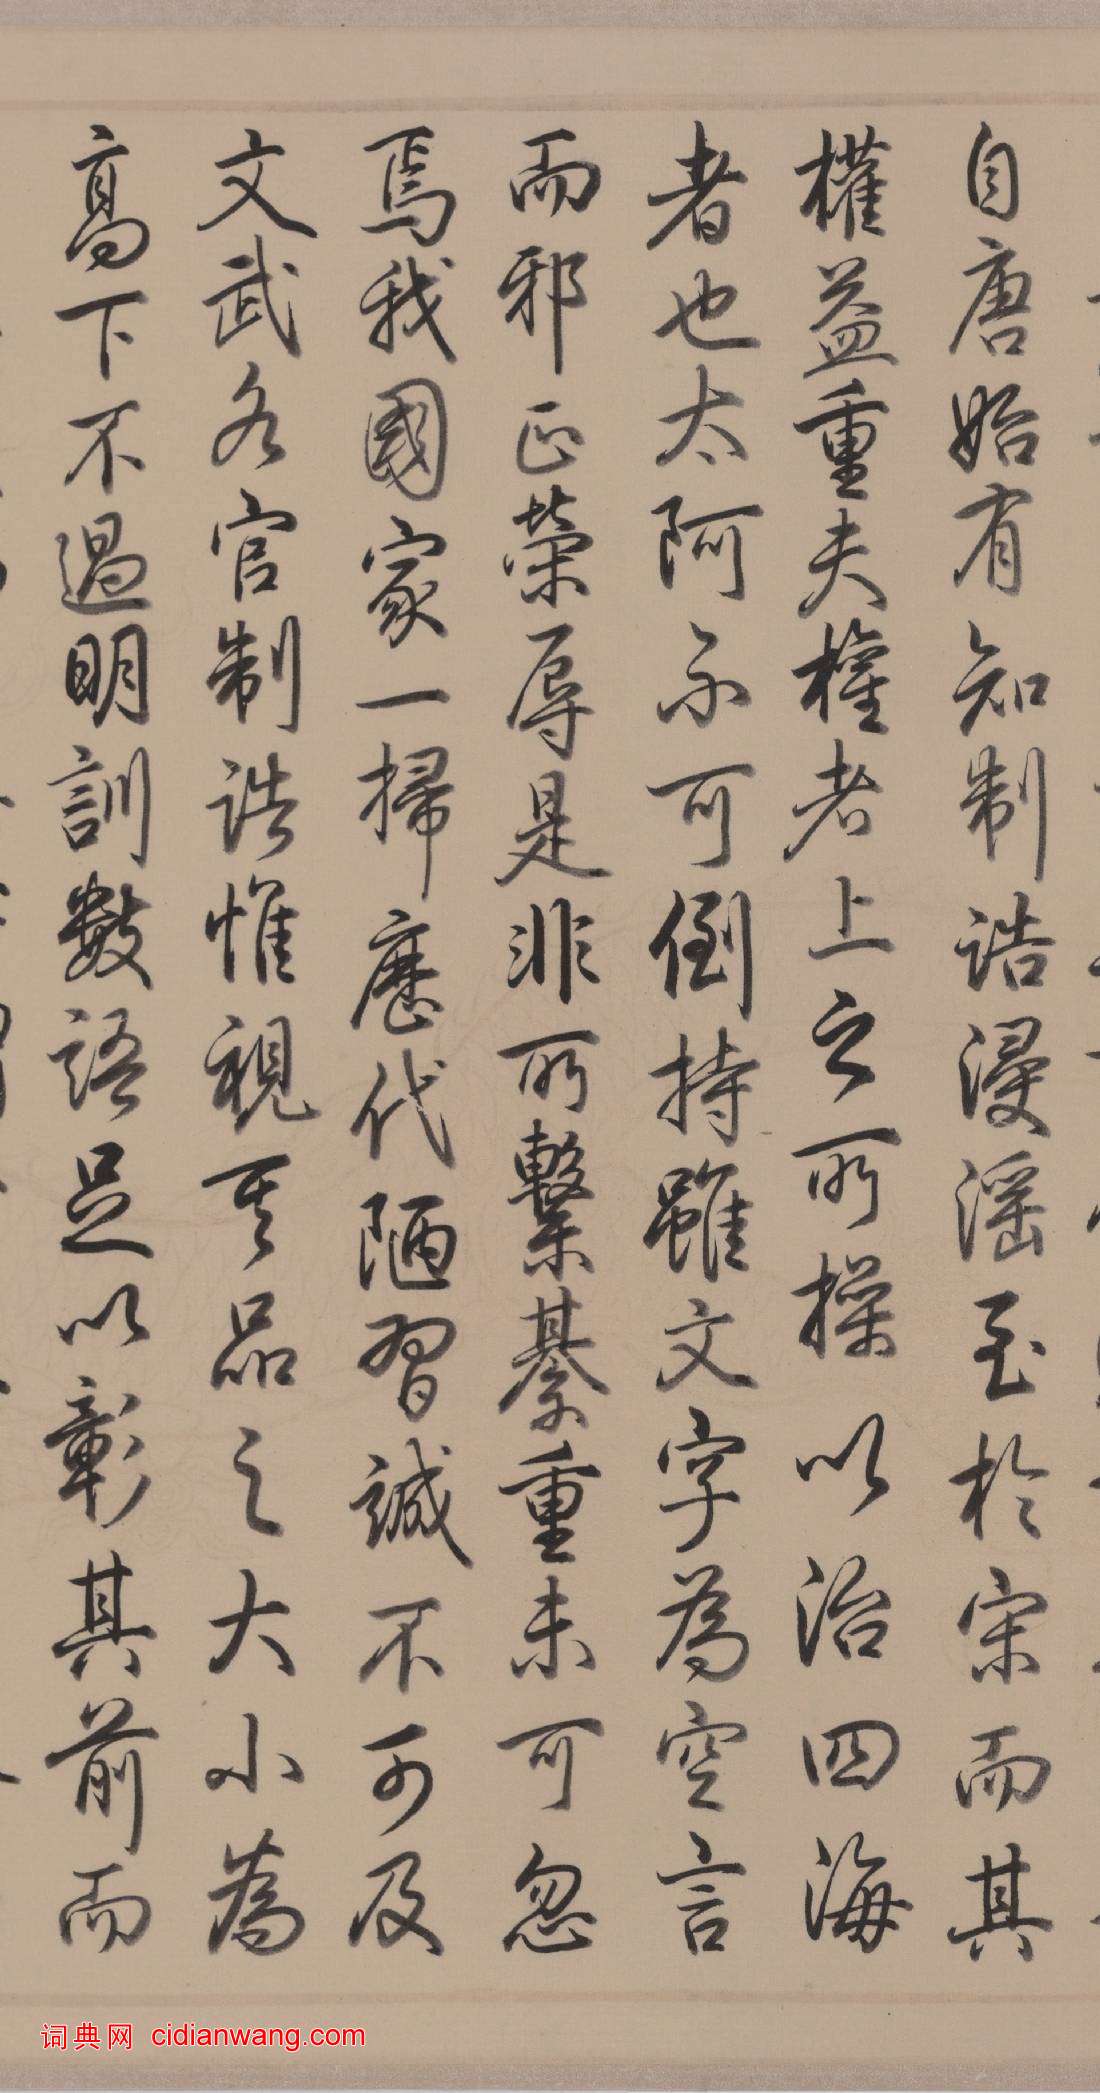 自唐始有知制誥浸淫至於宋而其
權益重夫權者上之所操以治四海
者也太阿不可倒持雖文字為空言
而邪正榮辱是非所繫綦重未可忽
焉我國家一掃歷代陋習誠不可及
文武各官制誥惟視其品之大小為
高下不過明訓數語足以彰其前而
词典网 cidianwang.com